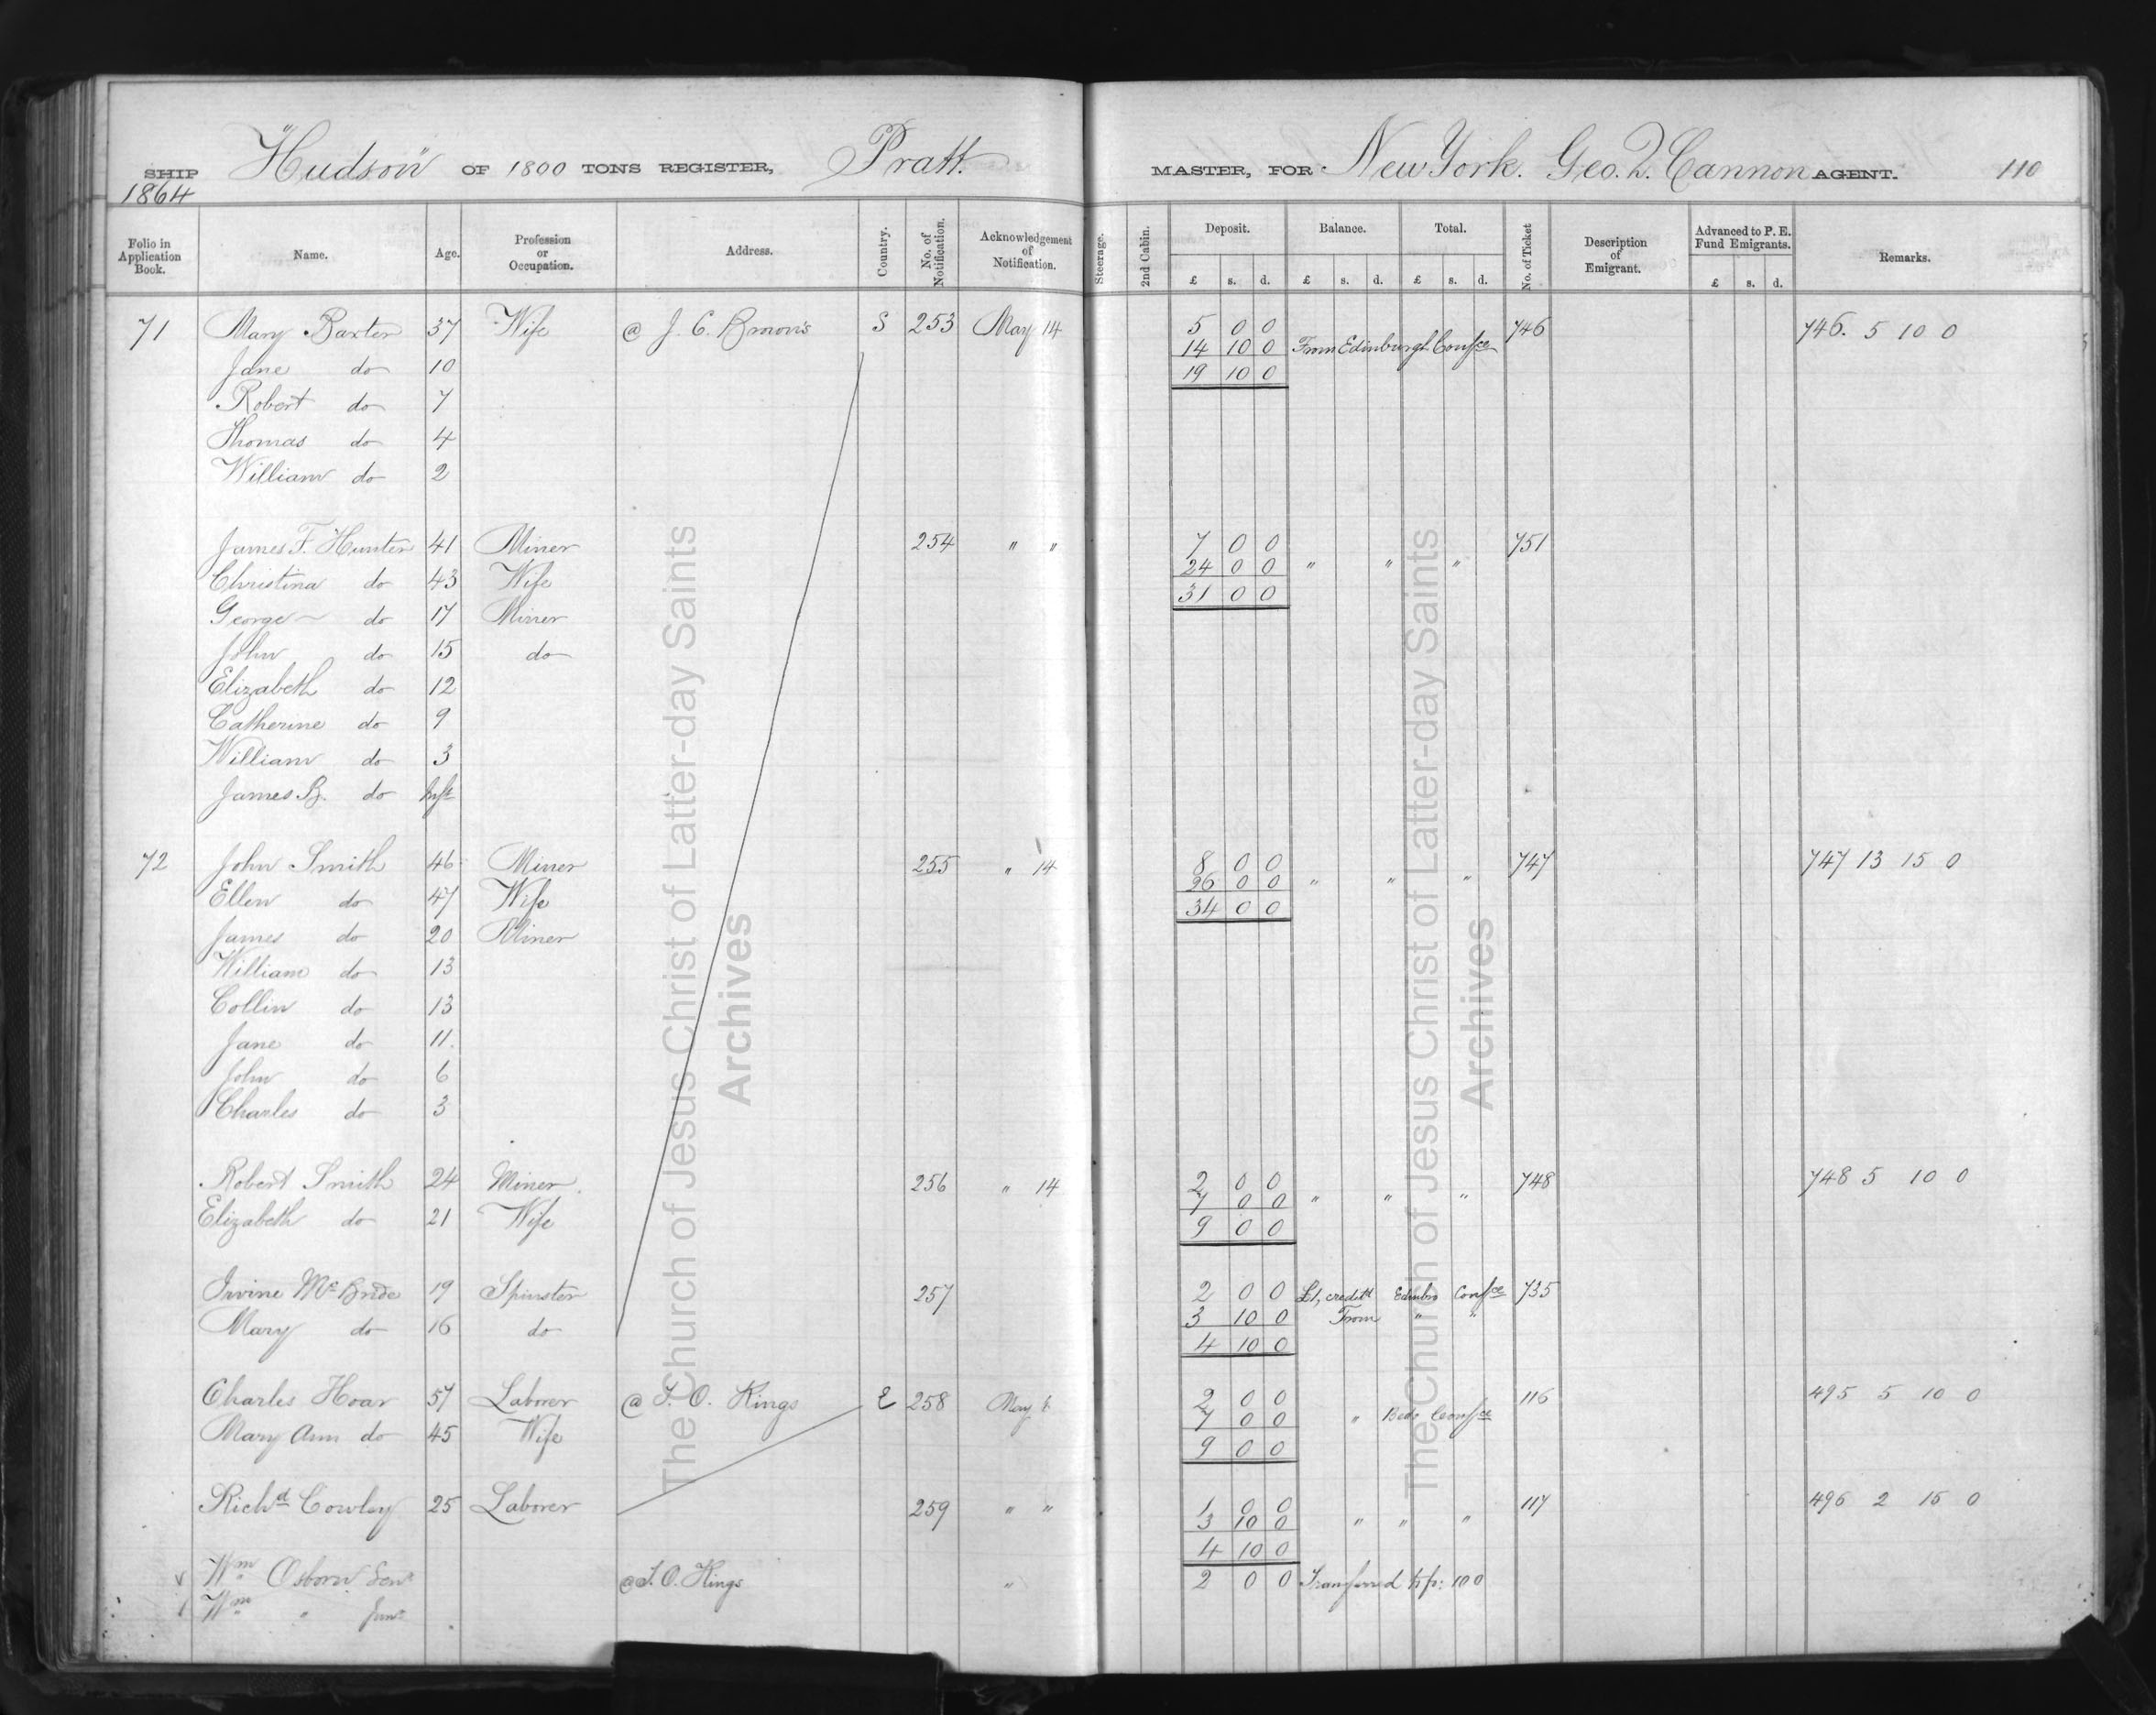 SHIP "Hudson" OF 1800 TONS REGISTER, Pratt. MASTER, FOR New York. Geo. Q. Cannon AGENT. 110
1864
Folio in Application Book. Name. Age. Profession or Occupation. Address. Country. No. of Notification. Acknowledgement of Notification. Steerage. 2nd Cabin. Deposit. Balance. Total. No. of Ticket Description of Emigrant. Advanced to P. E. Fund Emigrants. Remarks.
£ s. d. £ s. d. £ s. d. £ s. d.
71 Mary Baxter 37 Wife @ J. C. Brown's S 253 May 14 5 0 0 746 746. 5 10 0
14 10 0 From Edinburgh Confce
Jane do 10 19 10 0
Robert do 7
Thomas do 4
William do 2
James F. Hunter 41 Miner 254 " " 7 0 0 751
24 0 0 " " "
Christina do 43 Wife 31 0 0
George do 17 Miner
John do 15 do
Elizabeth do 12
Catherine do 9
William do 3
James B. do Inft
72 John Smith 46 Miner 255 " 14 8 0 0 747 747 13 15 0
26 0 0 " " "
Ellen do 47 Wife 34 0 0
James do 20 Miner
William do 13
Collin do 13
Jane do 11.
John do 6
Charles do 3
Robert Smith 24 Miner 256 " 14 2 0 0 748 748 5 10 0
7 0 0 " " "
Elizabeth do 21 Wife 9 0 0
Irvine McBride 19 Spinster 257 2 0 0 £1, credit Edinbro Confce 735
3 10 0 From " "
Mary do 16 do 4 10 0
Charles Hoar 57 Laborer @ F. O. Kings E 258 May 2 0 0 116 495 5 10 0
7 0 0 " Beds Confce
Mary Ann do 45 Wife 9 0 0
Richd Cowley 25 Laborer 259 " " 1 0 0 117 496 2 15 0
3 10 0 " " "
4 10 0
Wm Osborn Senr @ F. O. Kings " 2 0 0 Transferred to p: 100
Wm " Junr
The Church of Jesus Christ of Latter-day Saints
Archives
The Church of Jesus Christ of Latter-day Saints
Archives